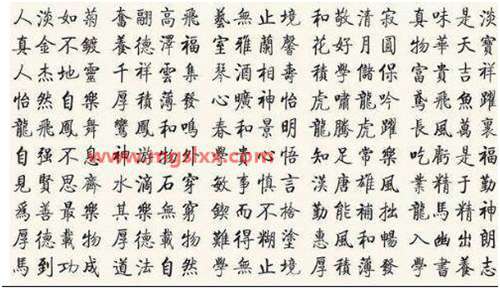 人淡如菊 奮翮高飛 藝無止境 和敬清寂 真味是淡
真金不鍍 養德澤福 室雅蘭馨 花好月圓 物華天寶
人杰地靈 千祥雲集 琴酒相壽 積學儲保 富貴吉祥
怡然自樂 厚積薄發 心曠神怡 虎嘯龍吟 鳶飛魚躍
龍飛鳳舞 鸞鳳和鳴 春和景明 龍騰虎躍 長風萬裏
自强不息 神游 學貴 悟 知足常樂 吃虧是福
www.mgslxx.com
見賢思齊 水滴石穿 敏事慎言 漢唐雄風 業精于勤
爲善最樂 其樂無窮 鍥而不捨 勤能補拙 龍馬精神
厚德載物 厚德載物 難得糊塗 惠風和暢 入幽出朗
馬到功成 道法自然 學無止境 厚積薄發 學書養志